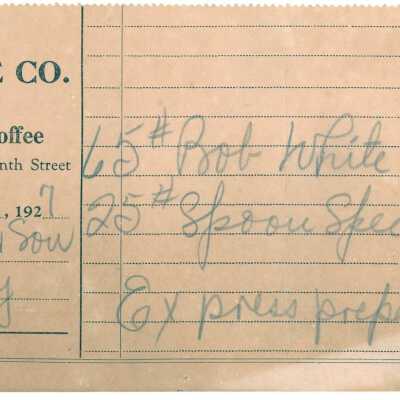 E CO.
offee
nth Street
, 1927
Son
y
65# Bob White
25# Spoon Spec
Express prep